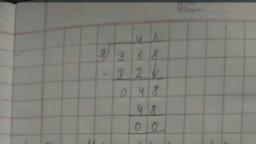 46
8) 368
- 32↓
048
48
00